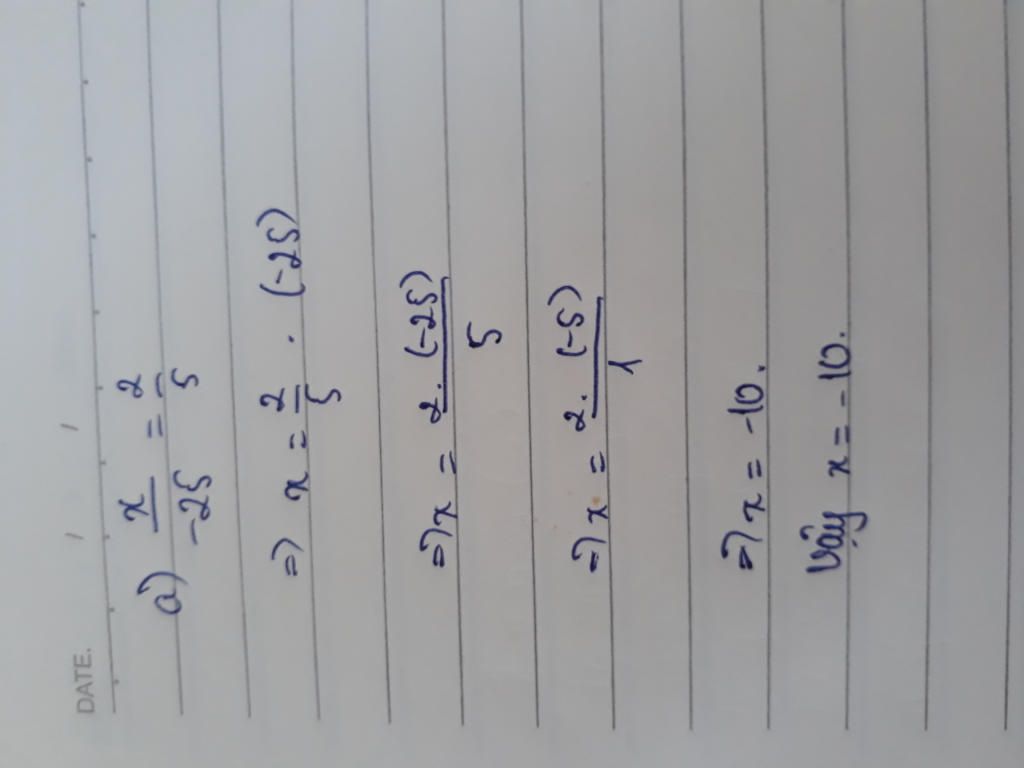 DATE. / /
a) x/-25 = 2/5
=) x = 2/5 . (-25)
=) x = 2. (-25)/5
=) x = 2. (-5)/1
=) x = -10.
Vậy x = -10.